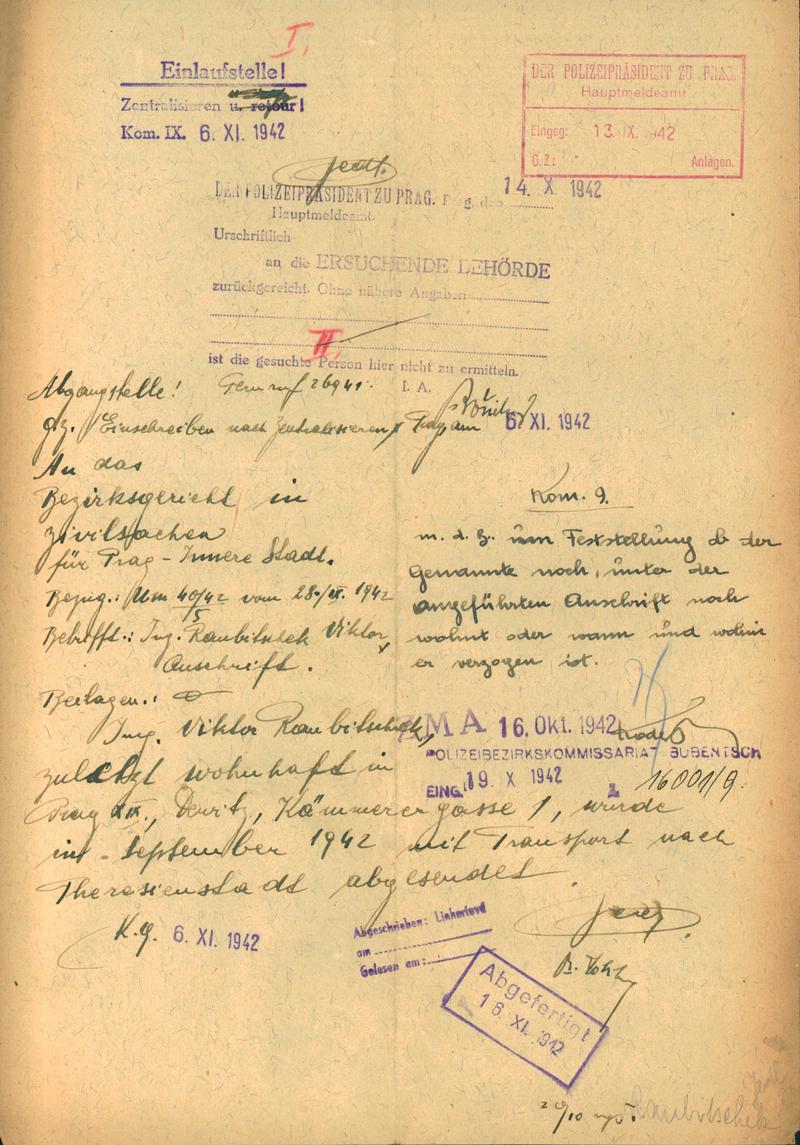 I.
Einlaufstelle!
Zentralisieren u. retour!
Kom. IX. 6. XI. 1942
DER POLIZEIPRÄSIDENT ZU PRAG.
Hauptmeldeamt
Eingeg: 13. IX. 1942
G.Z.: Anlagen.
DER POLIZEIPRÄSIDENT ZU PRAG. Prag, den 14. X. 1942
Hauptmeldeamt.
Urschriftlich
an die ERSUCHENDE BEHÖRDE
zurückgereicht. Ohne nähere Angaben
II.
ist die gesuchte Person hier nicht zu ermitteln.
I. A.
Abgangstelle! Fernruf 26941.
Einschreiben nach Zentralisieren Prag am 6. XI. 1942
An das
Bezirksgericht in
Zivilsachen
für Prag - Innere Stadt.
Bezug.: 40/42 vom 28. 1942
5
Betrifft.: Ing. Raubitschek Viktor
Anschrift.
Beilagen.:
Kom. 9.
m. d. B. um Feststellung ob der
Genannte noch, unter der
angeführten Anschrift noch
wohnt oder wann und wohin
er verzogen ist.
MA 16. Okt. 1942
POLIZEIBEZIRKSKOMMISSARIAT BUBENTSCH
EING. 19. X. 1942 16001/9.
Ing. Viktor Raubitschek,
zuletzt wohnhaft in
Prag XIX., Dewitz, Kämmerergasse 1, wurde
im September 1942 mit Transport nach
Theresienstadt abgesendet.
K. 9. 6. XI. 1942
Abgeschrieben:
am
Gelesen am:
Abgefertigt
16. XI. 1942
Raubitschek